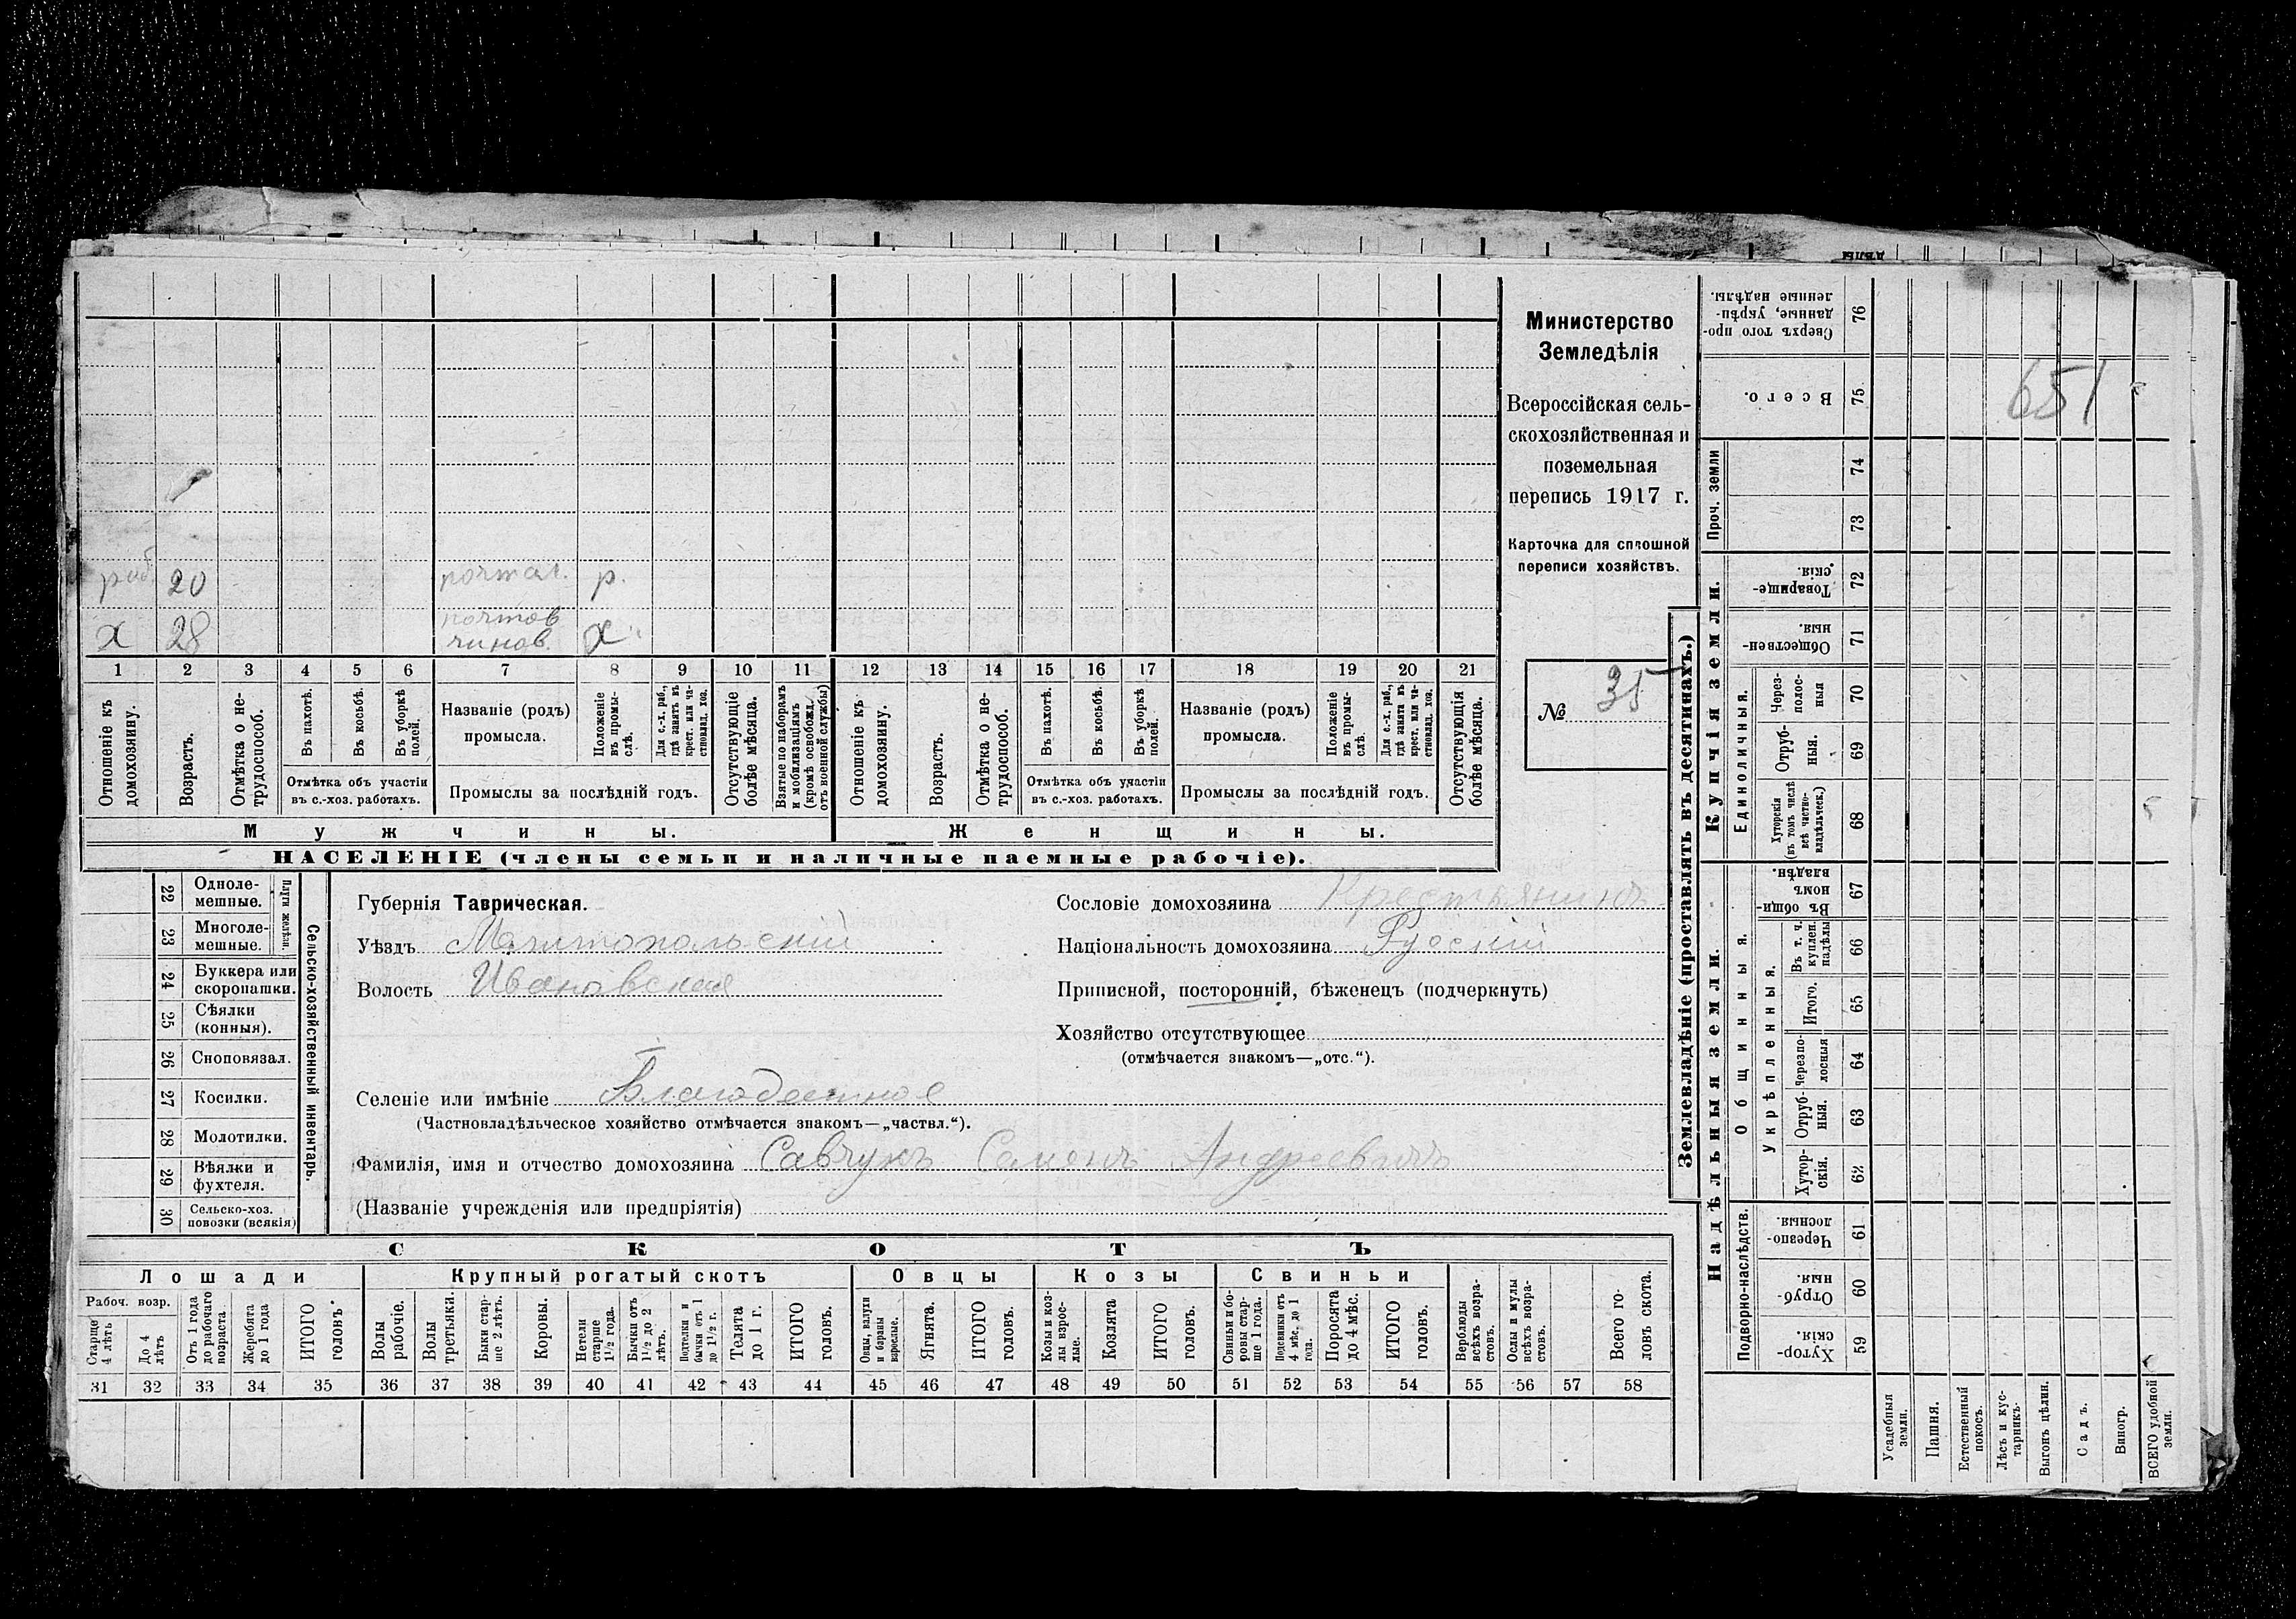 дѣлы
раб. 20 почтал. р.
х 28 почтов. чинов. х
1 2 3 4 5 6 7 8 9 10 11 12 13 14 15 16 17 18 19 20 21
Отношеніе къ домохозяину.
Возрастъ.
Отмѣтка о не-
трудоспособ.
Въ пахотѣ.
Въ косьбѣ.
Въ уборкѣ
полей.
Отмѣтка объ участіи
въ с.-хоз. работахъ.
Названіе (родъ)
промысла.
Положеніе
въ промы-
слѣ.
Для с.-х. раб.,
гдѣ занятъ въ
крест. или ча-
стновлад. хоз.
Промыслы за послѣдній годъ.
Отсутствующіе
болѣе мѣсяца.
Взятые по наборамъ
и мобилизаціямъ
(кромѣ освобожд.
отъ военной службы)
Отношеніе къ
домохозяину.
Возрастъ.
Отмѣтка о не-
трудоспособ.
Въ пахотѣ.
Въ косьбѣ.
Въ уборкѣ
полей.
Отмѣтка объ участіи
въ с.-хоз. работахъ.
Названіе (родъ)
промысла.
Положеніе
въ промы-
слѣ.
Для с.-х. раб.,
гдѣ занята въ
крест. или ча-
стновлад. хоз.
Промыслы за послѣдній годъ.
Отсутствующія
болѣе мѣсяца.
Мужчины.
Женщины.
НАСЕЛЕНІЕ (члены семьи и наличные наемные рабочіе).
Министерство
Земледѣлія
Всероссійская сель-
скохозяйственная и
поземельная
перепись 1917 г.
Карточка для сплошной
переписи хозяйствъ.
№ 35
22 Одноле-
мешные.
23 Многоле-
мешные.
Плуги желѣзн.
24 Буккера или
скоропашки.
25 Сѣялки
(конныя).
26 Сноповязал.
27 Косилки.
28 Молотилки.
29 Вѣялки и
фухтеля.
30 Сельско-хоз.
повозки (всякія)
Сельско-хозяйственный инвентарь.
Губернія Таврическая.
Уѣздъ Мелитопольскій
Волость Ивановская
Селеніе или имѣніе Благодатное
(Частновладѣльческое хозяйство отмѣчается знакомъ—„частвл.“).
Фамилія, имя и отчество домохозяина Савчукъ Семенъ Андреевичъ
(Названіе учрежденія или предпріятія)
Сословіе домохозяина Крестьянинъ
Національность домохозяина Русскій
Приписной, посторонній, бѣженецъ (подчеркнуть)
Хозяйство отсутствующее
(отмѣчается знакомъ—„отс.“).
СКОТЪ
Лошади
Рабоч. возр.
Старще
4 лѣтъ
До 4
лѣтъ
Отъ 1 года
до рабочаго
возраста
Жеребята
до 1 года
ИТОГО
головъ.
Крупный рогатый скотъ
Волы
рабочіе.
Волы
третьяки.
Быки стар-
ше 2 лѣтъ.
Коровы.
Нетели
старше
1½ года.
Бычки отъ
1½ до 2
лѣтъ.
Подтелки и
бычки отъ 1
до 1½ г.
Телята
до 1 г.
ИТОГО
головъ.
Овцы
Овцы, валухи
и бараны
взрослые.
Ягнята.
ИТОГО
головъ.
Козы
Козы и коз-
лы взрос-
лые.
Козлята
ИТОГО
головъ.
Свиньи
Свиньи и бо-
ровы стар-
ше 1 года.
Подсвинки отъ
4 мѣс. до 1
года.
Поросята
до 4 мѣс.
ИТОГО
головъ.
Верблюды
всѣхъ возра-
стовъ.
Ослы и мулы
всѣхъ возра-
стовъ.
Всего го-
ловъ скота.
31 32 33 34 35 36 37 38 39 40 41 42 43 44 45 46 47 48 49 50 51 52 53 54 55 56 57 58
Землевладѣніе (проставлять въ десятинахъ.)
Купчія земли.
Надѣльныя земли.
Сверхъ того про-
данные, укрѣп-
ленные надѣлы.
76
Всего.
75
651
Проч. земли
74
73
Товарище-
скія.
72
Обществен-
ныя.
71
Единоличныя.
Через-
полос-
ныя
70
Отруб-
ныя.
69
Хуторскія
(въ томъ числѣ
всѣ частно-
владѣльческ.)
68
Общинныя.
Въ общин-
номъ
владѣн.
67
Укрѣпленныя.
Въ т. ч.
куплен.
надѣлы
66
Итого.
65
Черезпо-
лосныя
64
Отруб-
ныя.
63
Хутор-
скія.
62
Подворно-наслѣдств.
Черезпо-
лосныя.
61
Отруб-
ныя.
60
Хутор-
скія.
59
Усадебныя
земли.
Пашня.
Естественный
покосъ.
Лѣсъ и кус-
тарникъ.
Выгонъ цѣлин.
Садъ.
Виногр.
ВСЕГО удобной
земли.